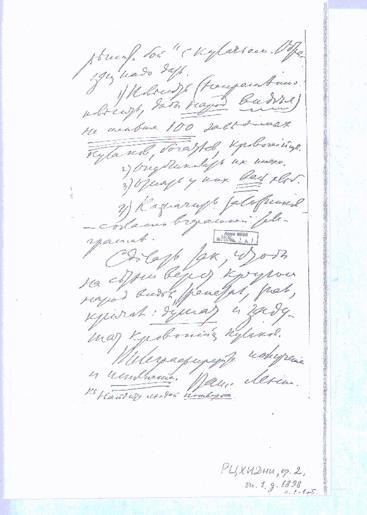 решит. бой" с кулачьем. Обра-
зец надо дать.
1) Повесить (непременно
повесить, дабы народ видел)
не меньше 100 заведомых
кулаков, богатеев, кровопийц.
2) Опубликовать их имена.
3) Отнять у них весь хлеб.
4) Назначить заложников
— согласно вчерашней теле-
грамме.
Сделать так, чтобы
на сотни верст кругом
народ видел, трепетал, знал,
кричал: душат и заду-
шат кровопийц кулаков.
Телеграфируйте получение
и исполнение. Ваш Ленин.
Найдите людей потверже
РЦХИДНИ, ф. 2,
оп. 1, д. 1898